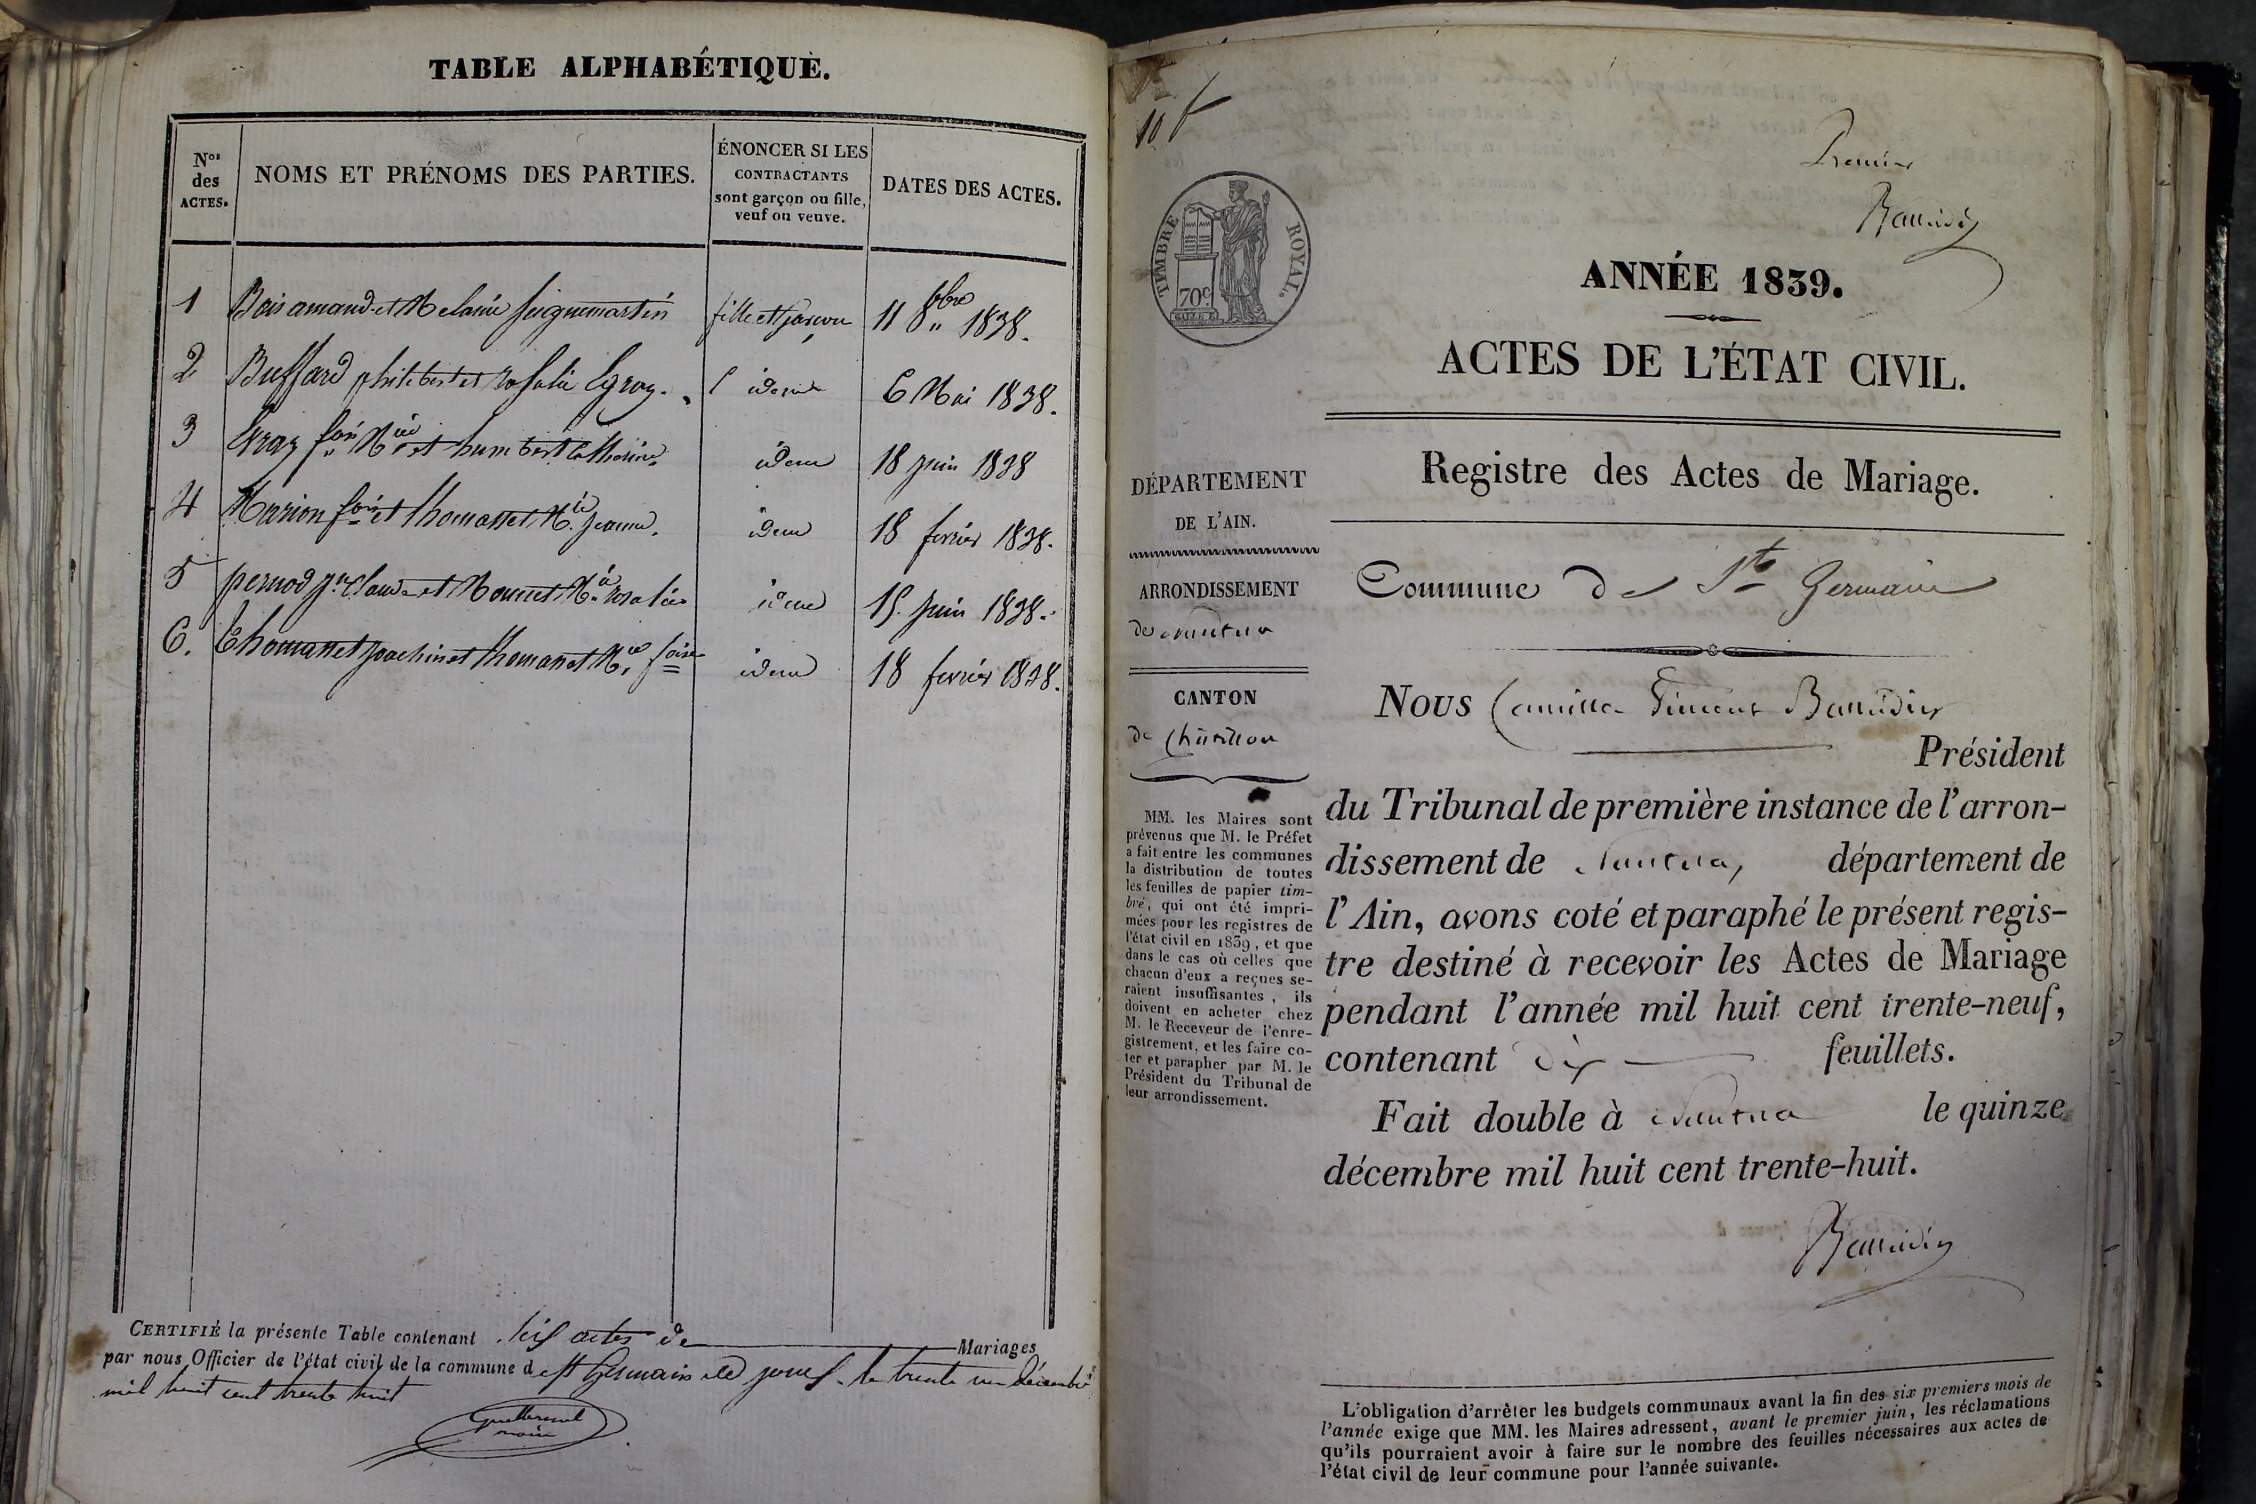 TABLE ALPHABÉTIQUE.
Nos des ACTES.
NOMS ET PRÉNOMS DES PARTIES.
ÉNONCER SI LES
CONTRACTANTS
sont garçon ou fille,
veuf ou veuve.
DATES DES ACTES.
1 Bois amand et Melanie seignemartin fille et garçon 11 8bre 1838.
2 Buffard philibert et rosalie Gros. idem 6 Mai 1838.
3 fois Mie et humbert Catherine idem 18 juin 1838
4 Marion fois et thomasset Mie jeanne. idem 18 fevrier 1838.
5 pernod jn Claude et Mie rosalie idem 15. juin 1838.
6. Thomasset joachim et thomasset Mie foise idem 18 fevrier 1838.
CERTIFIÉ la présente Table contenant six actes de Mariages
par nous Officier de l'état civil de la commune de St Germain de joux, le trente un décembre
mil huit cent trente huit
maire
10 f
Premier
TIMBRE ROYAL.
70c
ANNÉE 1839.
ACTES DE L'ÉTAT CIVIL.
Registre des Actes de Mariage.
DÉPARTEMENT
DE L'AIN.
ARRONDISSEMENT
de Nantua
CANTON
de Châtillon
MM. les Maires sont
prévenus que M. le Préfet
a fait entre les communes
la distribution de toutes
les feuilles de papier tim-
bré, qui ont été impri-
mées pour les registres de
l'état civil en 1839, et que
dans le cas où celles que
chacun d'eux a reçues se-
raient insuffisantes, ils
doivent en acheter chez
M. le Receveur de l'enre-
gistrement, et les faire co-
ter et parapher par M. le
Président du Tribunal de
leur arrondissement.
Commune de St Germain
Nous Camille Vincent
Président
du Tribunal de première instance de l'arron-
dissement de Nantua, département de
l'Ain, avons coté et paraphé le présent regis-
tre destiné à recevoir les Actes de Mariage
pendant l'année mil huit cent trente-neuf,
contenant dix feuillets.
Fait double à Nantua le quinze
décembre mil huit cent trente-huit.
L'obligation d'arrêter les budgets communaux avant la fin des six premiers mois de
l'année exige que MM. les Maires adressent, avant le premier juin, les réclamations
qu'ils pourraient avoir à faire sur le nombre des feuilles nécessaires aux actes de
l'état civil de leur commune pour l'année suivante.